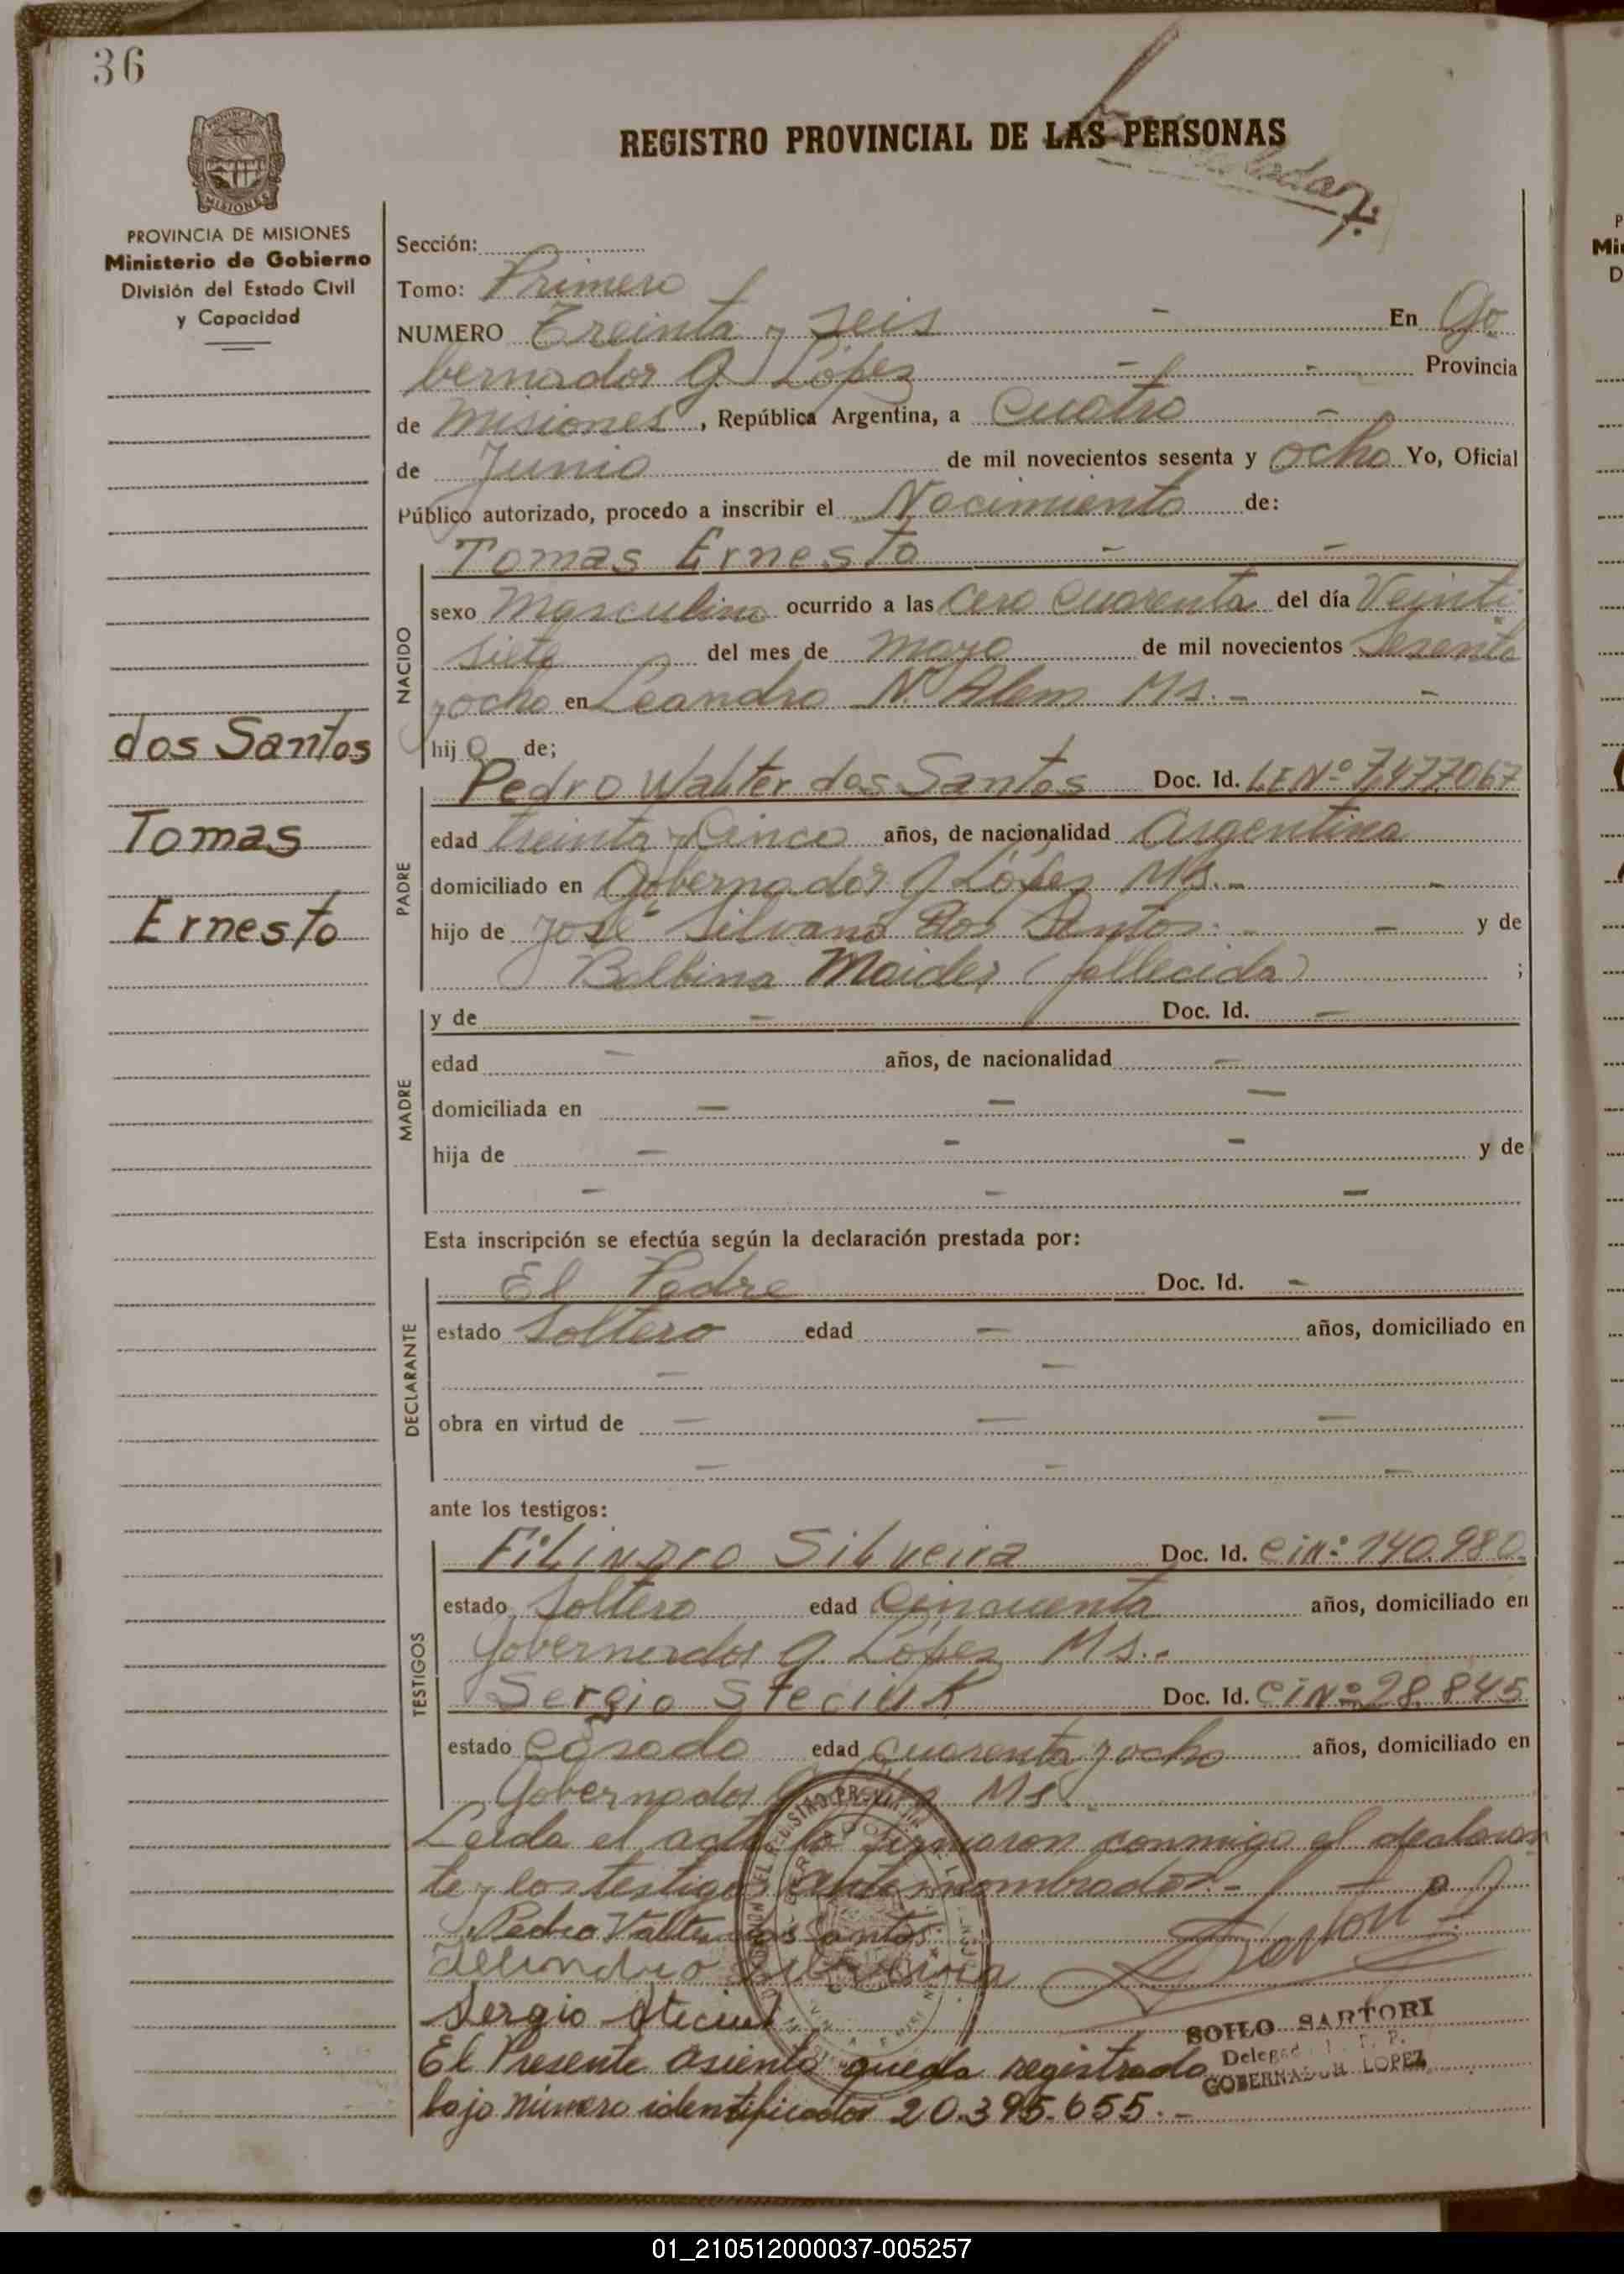 36
REGISTRO PROVINCIAL DE LAS PERSONAS
PROVINCIA DE MISIONES
Ministerio de Gobierno
División del Estado Civil
y Capacidad
Sección:
Tomo: Primero
NUMERO Treinta y seis - En Go
bernador G. López - - Provincia
de Misiones, República Argentina, a Cuatro -
de Junio de mil novecientos sesenta y ocho Yo, Oficial
Público autorizado, procedo a inscribir el Nacimiento de:
Tomas Ernesto - -
NACIDO
sexo Masculino ocurrido a las cero cuarenta del día Veinti
siete del mes de mayo de mil novecientos sesenta
y ocho en Leandro N. Alem Ms. - -
hijo de;
dos Santos
Tomas
Ernesto
PADRE
Pedro Walter dos Santos Doc. Id. L.E Nº 7.477.067
edad treinta y Cinco años, de nacionalidad Argentina
domiciliado en Gobernador G López Ms. - -
hijo de José Silvano dos Santos - - y de
Balbina Maider (fallecida) ;
MADRE
y de - Doc. Id. -
edad - años, de nacionalidad -
domiciliada en - - -
hija de - - - y de
- - -
Esta inscripción se efectúa según la declaración prestada por:
DECLARANTE
El Padre Doc. Id. -
estado Soltero edad - años, domiciliado en
- -
obra en virtud de - - -
- - -
ante los testigos:
TESTIGOS
Silveira Doc. Id. CiNº 140.980
estado Soltero edad Cincuenta años, domiciliado en
Gobernador G. López Ms. -
Sergio Steciuk Doc. Id. CiNº 28.845
estado Casado edad cuarenta y ocho años, domiciliado en
Gobernador Ms. -
Leida el acta la firmaron conmigo el declaran
te y los testigos antes nombrados. -
Pedro Valter dos Santos
Sergio Steciuk
SOILO SARTORI
GOBERNADOR LOPEZ
El Presente asiento queda registrado
bajo número identificador 20.395.655. -
01_210512000037-005257